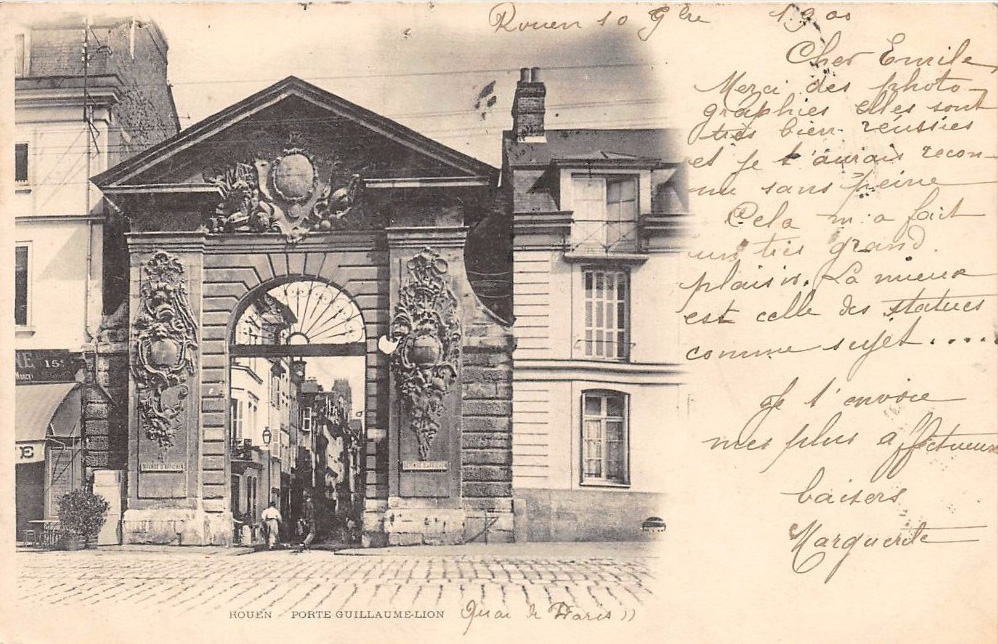 Rouen 10 9bre 1900
Cher Emile
Merci des photo-
graphies elles sont
très bien réussies
et je t'aurais recon-
nu sans peine
Cela m'a fait
un très grand
plaisir. La mieux
est celle des statues
comme sujet....
Je t'envoie
mes plus affectueux
baisers
Marguerite
15c
E
DEFENSE D'AFFICHER
DEFENSE D'AFFICHER
ROUEN - PORTE GUILLAUME-LION Quai de Paris